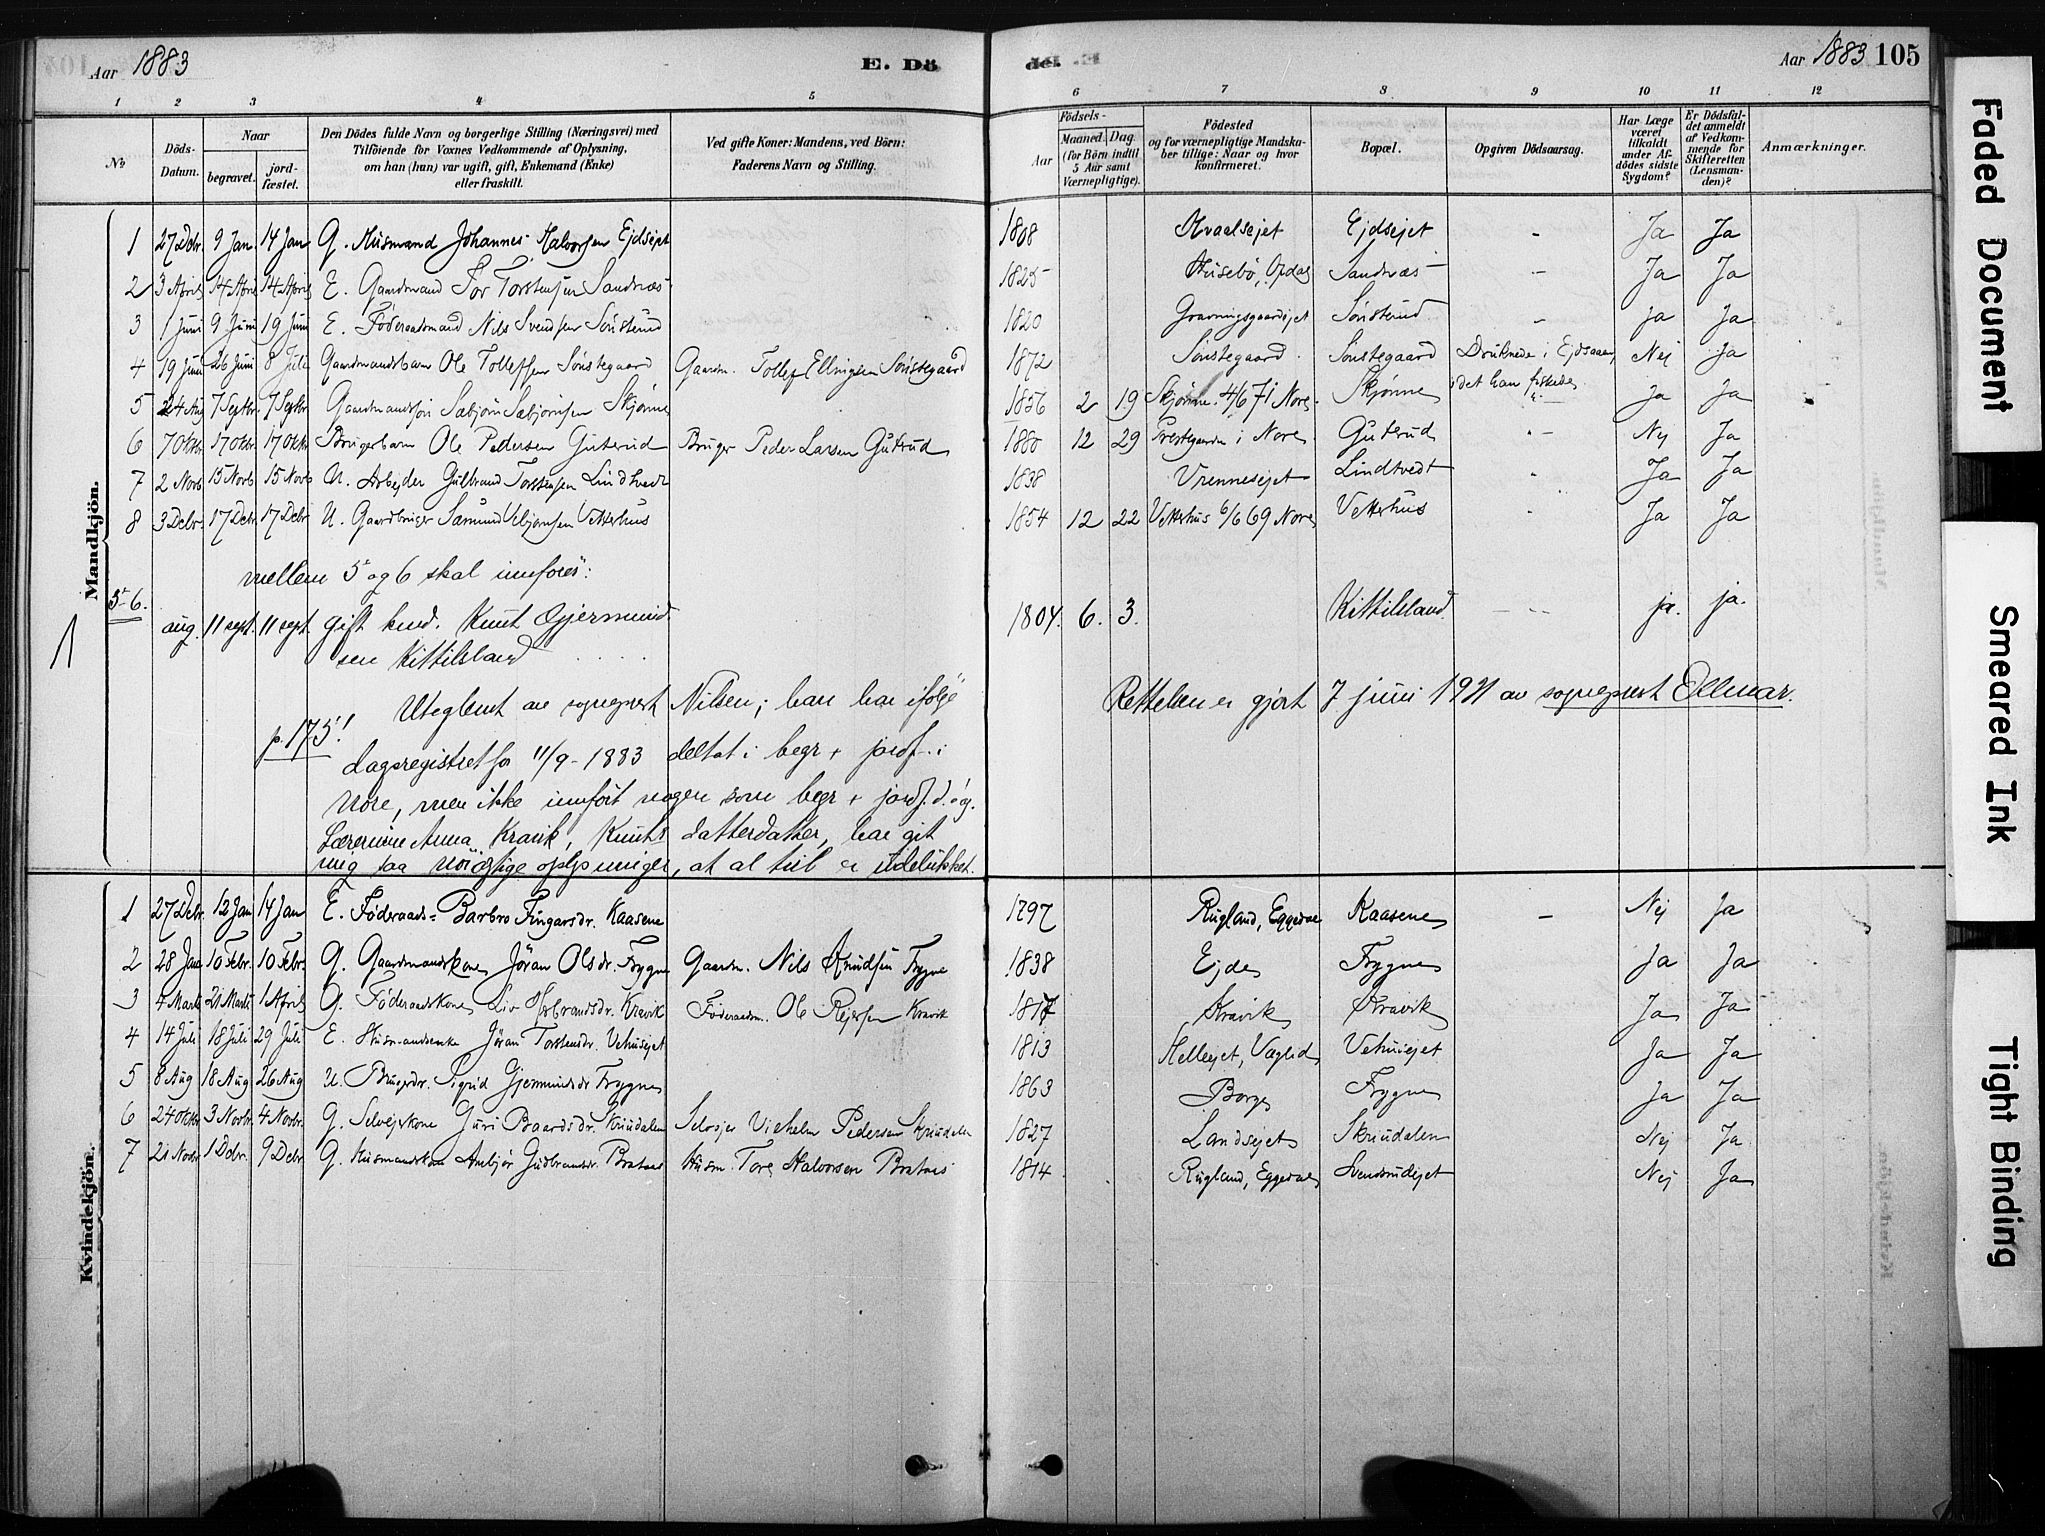 Aar 1883 E. Dö
de. Aar 1883 105
1 2 3 4 5 6 7 8 9 10 11 12
No
Döds-Datum.
Naar
begravet.
jord-fæstet.
Den Dödes fulde Navn og borgerlige Stilling (Næringsvei) med
Tilföiende for Voxnes Vedkommende af Oplysning,
om han (hun) var ugift, gift, Enkemand (Enke)
eller fraskilt.
Ved gifte Koner: Mandens, ved Börn:
Faderens Navn og Stilling.
Födsels-
Aar
Maaned. Dag.
(for Börn indtil
5 Aar samt
Værnepligtige).
Födested
og for værnepligtige Mandska-
ber tillige: Naar og hvor
konfirmeret.
Bopæl.
Opgiven Dödsaarsag.
Har Læge
været
tilkaldt
under Af-
dödes sidste
Sygdom?
Er Dödsfal-
det anmeldt
af Vedkom-
mende for
Skifteretten
(Lensman-
den)?
Anmærkninger.
Mandkjön.
1 27 Debr. 9 Jan. 14 Jan G. Husmand Johannes Halvorsen Ejdsejet 1808 Hvaalsejet Ejdsejet - Ja Ja
2 3 April 14 April 14 April E. Gaardmand Tor Torstensen Sandnæs 1825 Husebö, Opdal Sandnæs - Ja Ja
3 1 Juni 9 Juni 19 Juni E. Föderaadsmand Nils Svendsen Sönsterud 1820 Gravningsgaardsejet Sönsterud - Ja Ja
4 19 Juni 26 Juni 8 Juli Gaardmandsbarn Ole Tollefsen Sönstegaard Gaardm. Tollef Ellingsen Sönstegaard 1872 Sönstegaard Sönstegaard Druknede i Ejdsaaen, Nej Ja
idet han fiskede
5 24 Aug 7 Septbr. 7 Septbr Gaardmandssön Sæbjörn Sæbjörnsen Skjönne 1856 2 19 Skjönne 4/6 71 Nore. Skjönne Ja Ja
6 7 Oktbr 17 Oktbr. 17 Oktbr Brugerbarn Ole Pedersen Guterud Bruger Peder Larsen Guterud 1880 12 29 Prestegaarden i Nore Guterud - Nej Ja
7 2 Novb 15 Novb 15 Novb U. Arbejder Gulbrand Torstensen Lindtvedt 1838 Vrennesejet Lindtvedt - Ja Ja
8 3 Debr. 17 Debr 17 Debr U. Gaardbruger Samund Vebjörnsen Vetterhus 1854 12 22 Vetterhus 6/6 69 Nore Vetterhus Ja Ja
mellem 5 og 6 skal innföres:
5-6. aug. 11 sept. 11 sept. gift Knut Gjermund- 1804. 6. 3. Kittilsland. ja. ja.
sen Kittilsland
1
Uteglemt av sogneprest Nilsen; han har ifölge
p. 175!
Rettelsen er gjort 7 juni 1921 av sogneprest Ellmar.
dagsregistret for 11/9-1883 deltat i begr + jordf. i
Nore, men ikke innfört nogen som begr + jordf. d. dg.
Lærerinne Anna Kravik, Knuts datterdatter, har git
mig saa nöiagtige oplysninger, at al tvil er udelukket.
Kvindekjön.
1 27 Debr. 12 Jan 14 Jan E. Föderaads= Barbro Fingarsdr. Kaasene 1797 Rugland, Eggedal Kaasene - Nej Ja
2 28 Jan 10 Febr. 10 Febr. G. Gaardmandskone Jöran Olsdr. Frygne Gaardm. Nils Knudsen Frygne 1838 Ejde Frygne Ja Ja
3 4 Marts 21 Marts 1 April G. Föderaadskone Liv Herbrandsdr. Kravik Föderaadsm. Ole Rejersen Kravik 1817 Kravik Kravik Ja Ja
4 14 Juli 18 Juli 29 Juli E. Husmandsenke Jöran Torstensdr. Vehusejet 1813 Hellesejet, Væglid Vehusejet Ja Ja
5 8 Aug 18 Aug 26 Aug U. Brugerdr. Sigrid Gjermundsdr Frygne 1863 Borge Frygne Ja Ja
6 24 Oktbr 3 Novbr. 4 Novbr. G. Selvejerkone Guri Baardsdr. Skrudalen Selvejer Vilhelm Pedersen Skrudalen 1827 Landsejet Skrudalen Nej Ja
7 21 Novbr 1 Debr. 9 Debr. G. Husmandskone Anebjör Gudbrandsdr. Bratens Husm. Tore Halvorsen Bratens 1814 Rugland, Eggedal Svendsrudejet Nej Ja
Faded Document
Smeared Ink
Tight Binding